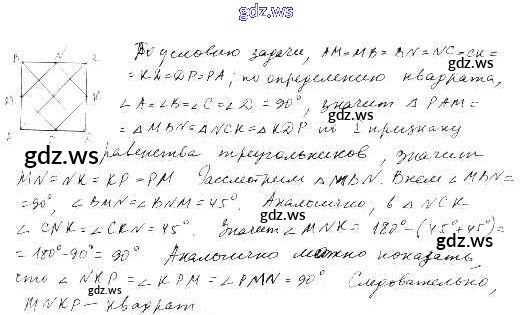 gdz.ws
По условию задачи, AM=MB=BN=NC=CK=
=KD=DP=PA; по определению квадрата,
∠A=∠B=∠C=∠D=90°, значит △PAM=
=△MBN=△NCK=△KDP по I признаку
gdz.ws
равенства треугольников, значит
gdz.ws
MN=NK=KP=PM. Рассмотрим △MBN. В нем ∠MBN=
=90°, ∠BMN=∠BNM=45°. Аналогично, в △NCK
∠CNK=∠CKN=45°. Значит ∠MNK=180°-(45°+45°)=
gdz.ws
=180°-90°=90°. Аналогично можно показать
что ∠NKP=∠KPM=∠PMN=90°. Следовательно,
gdz.ws
MNKP- квадрат
gdz.ws
B N
M K